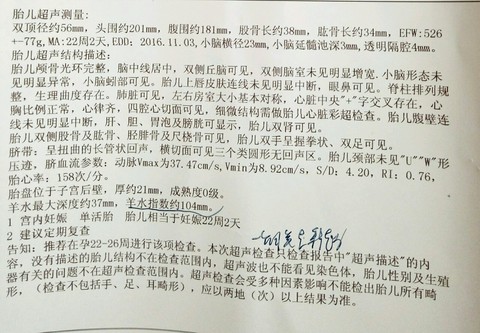 胎儿超声测量:
双顶径约56mm, 头围约201mm, 腹围约181mm, 股骨长约38mm, 肱骨长约34mm, EFW:526
+-77g,MA:22周2天,EDD; 2016.11.03,小脑横径23mm,小脑延髓池深3mm,透明隔腔4mm。
胎儿超声结构描述:
胎儿颅骨光环完整, 脑中线居中, 双侧丘脑可见, 双侧脑室未见明显增宽. 小脑形态未
见明显异常, 小脑蚓部可见。胎儿上唇皮肤连线未见明显中断, 眼鼻可见。脊柱排列规
整, 生理曲度存在。肺脏可见, 左右房室大小基本对称, 心脏中央"+"字交叉存在, 心
胸比例正常, 心律齐, 四腔心切面可见, 细微结构需做胎儿心脏彩超检查。胎儿腹壁连
线未见明显中断, 肝、胆、胃泡及膀胱可显示, 胎儿双肾可见。
胎儿双侧股骨及肱骨、胫腓骨及尺桡骨可见, 胎儿双手呈握拳状、双足可见。
脐带: 呈扭曲的长管状回声, 横切面可见三个类圆形无回声区。胎儿颈部未见"U""W"形
压迹, 脐血流参数: 动脉Vmax为37.47cm/s,Vmin为8.92cm/s, S/D: 4.20, RI: 0.76,
胎心率: 158次/分。
胎盘位于子宫后壁, 厚约21mm, 成熟度0级。
羊水最大深度约37mm, 羊水指数约104mm。
1 宫内妊娠 单活胎 胎儿相当于妊娠22周2天
2 建议定期复查
告知: 推荐在孕22-26周进行该项检查。本次超声检查只检查报告中"超声描述"的内
容, 没有描述的胎儿结构不在检查范围内, 超声波也不能看见染色体, 胎儿性别及生殖
器有关的问题不在超声检查范围内。超声检查会受多种因素影响不能检出胎儿所有畸
形, (检查不包括手、足、耳畸形), 应以两地(次)以上结果为准。